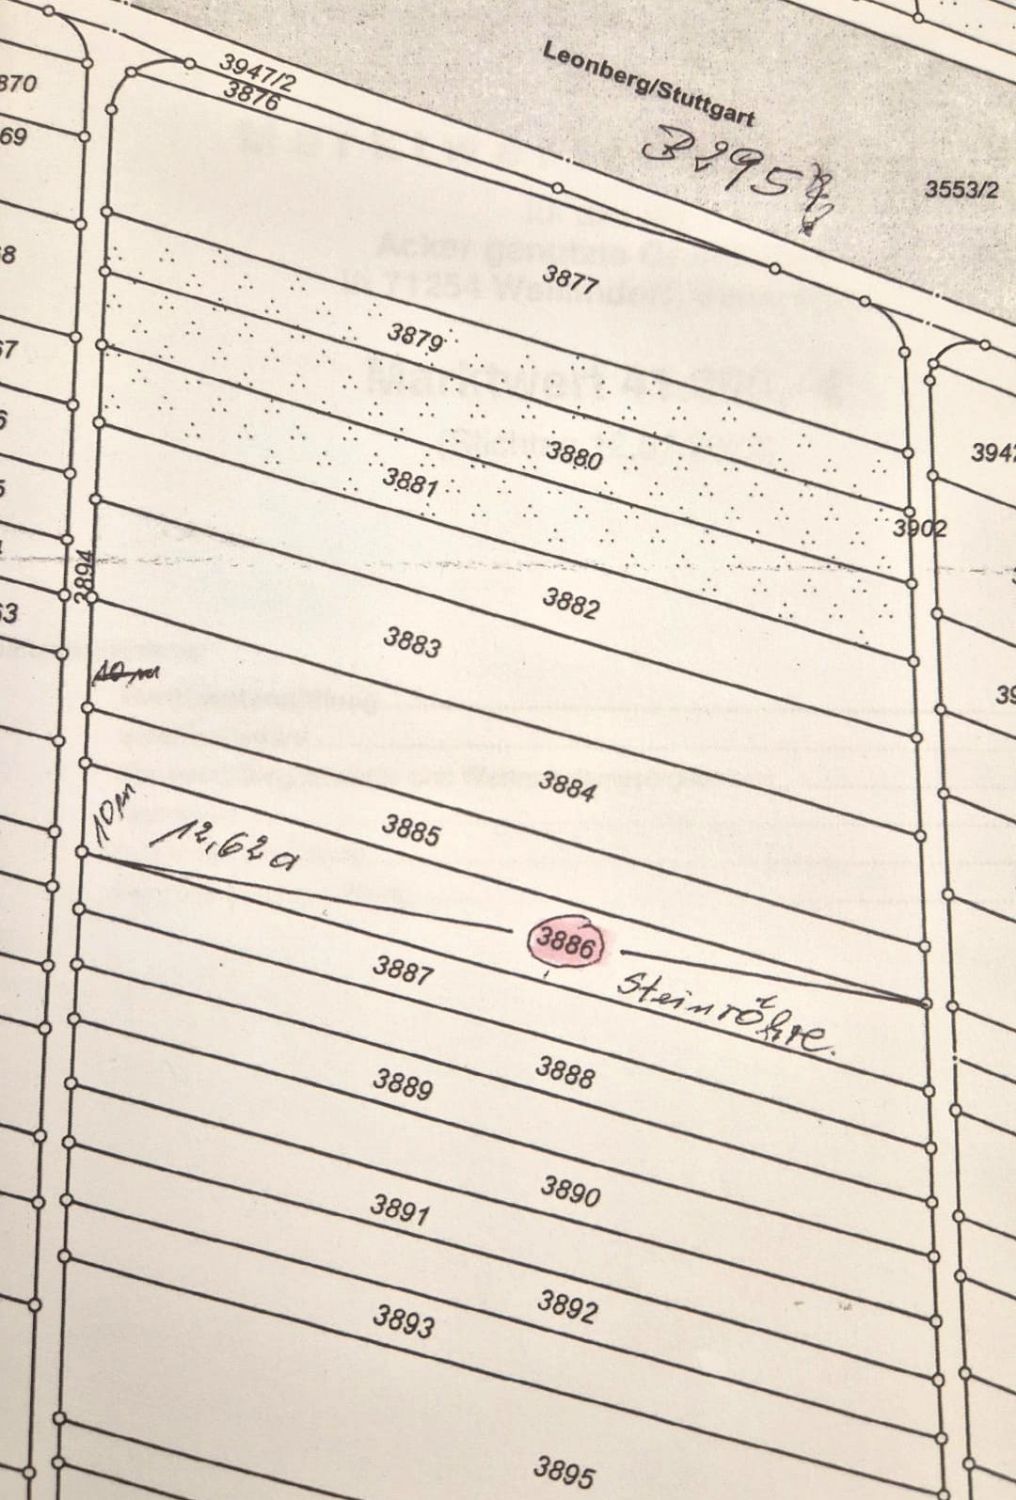 3947/2
3876
Leonberg/Stuttgart
3553/2
870
69
3877
3879
3880
3881
3902
3894
3882
3883
10m
3884
3885
10m
12,62a
3886
Steinröhre.
3887
3888
3889
3890
3891
3892
3893
3895